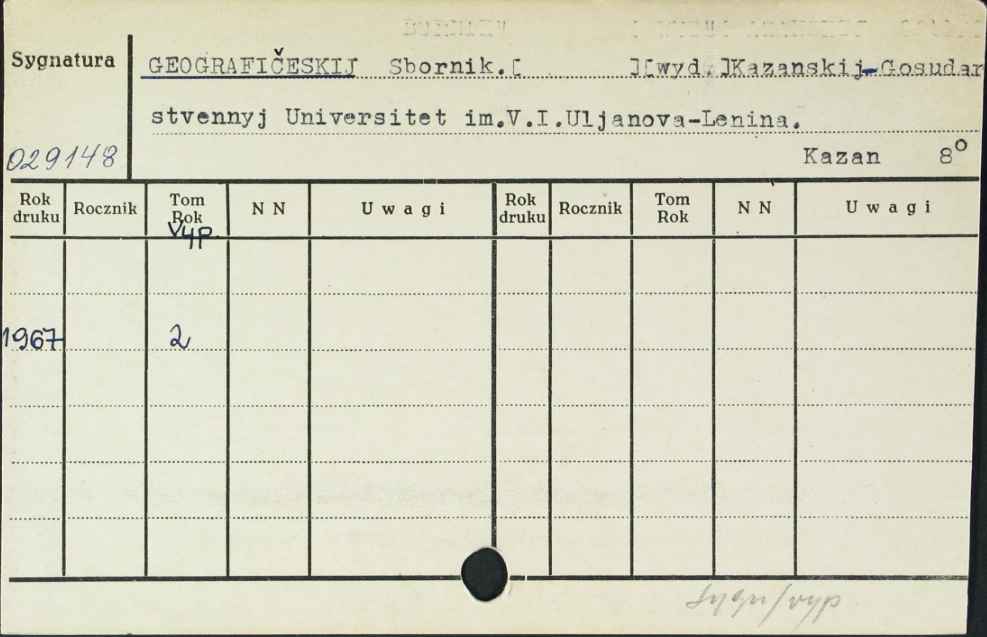 Sygnatura
GEOGRAFIČESKIJ Sbornik.[ ][wyd.]Kazanskij-Gosudar
stvennyj Universitet im.V.I.Uljanova-Lenina.
029148
Kazan 8°
Rok druku Rocznik Tom Rok N N Uwagi Rok druku Rocznik Tom Rok N N Uwagi
Vyp.
1967 2